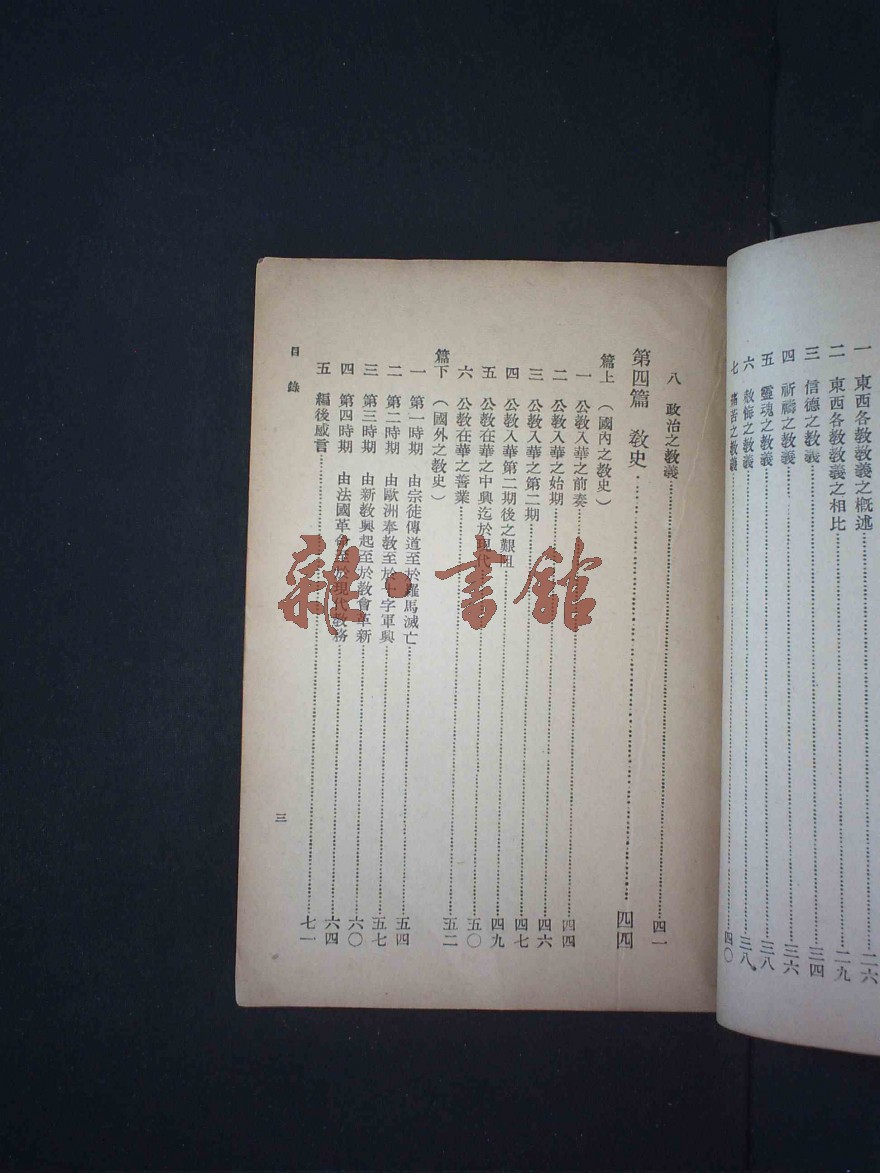 一 東西各教教義之概述……二六
二 東西各教教義之相比……二九
三 信德之教義……三四
四 祈禱之教義……三六
五 靈魂之教義……三八
六 赦悔之教義……三八
七 痛苦之教義……四〇
八 政治之教義……四一
第四篇 教史……四四
篇上 (國內之教史)
一 公教入華之前奏……四四
二 公教入華之始期……四六
三 公教入華之第二期……四七
四 公教入華第二期後之艱阻……四九
五 公教在華之中興迄於現代……五〇
六 公教在華之善業……五二
篇下 (國外之教史)
一 第一時期 由宗徒傳道至於羅馬滅亡……五四
二 第二時期 由歐洲奉教至於十字軍興……五七
三 第三時期 由新教興起至於教會革新……六〇
四 第四時期 由法國革命至於現代教務……六四
五 編後感言……七一
目錄
三
雜·書館